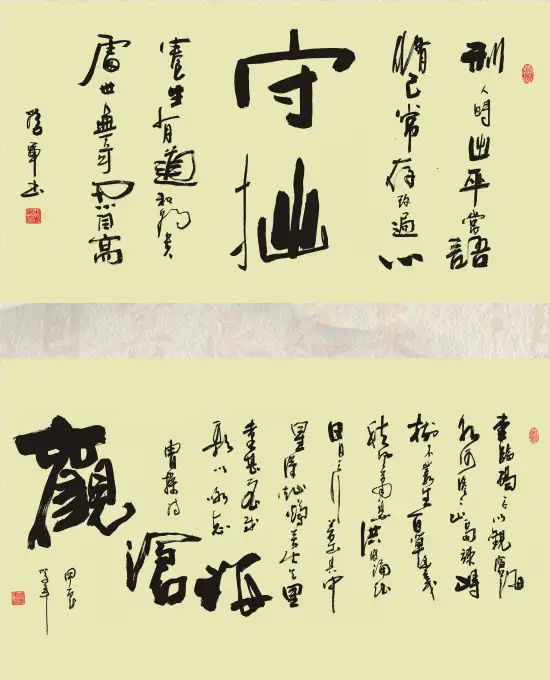 人時出平常語
脩己常存改過心
守拙
養生有道和為貴
處世無奇忍自高
軍書
東臨碣石以觀滄海
水何澹澹山島竦峙
樹木叢生百草豐茂
秋風蕭瑟洪波湧起
日月之行若出其中
星漢燦爛若出其里
幸甚至哉
歌以詠志
曹操詩
觀滄海
甲辰